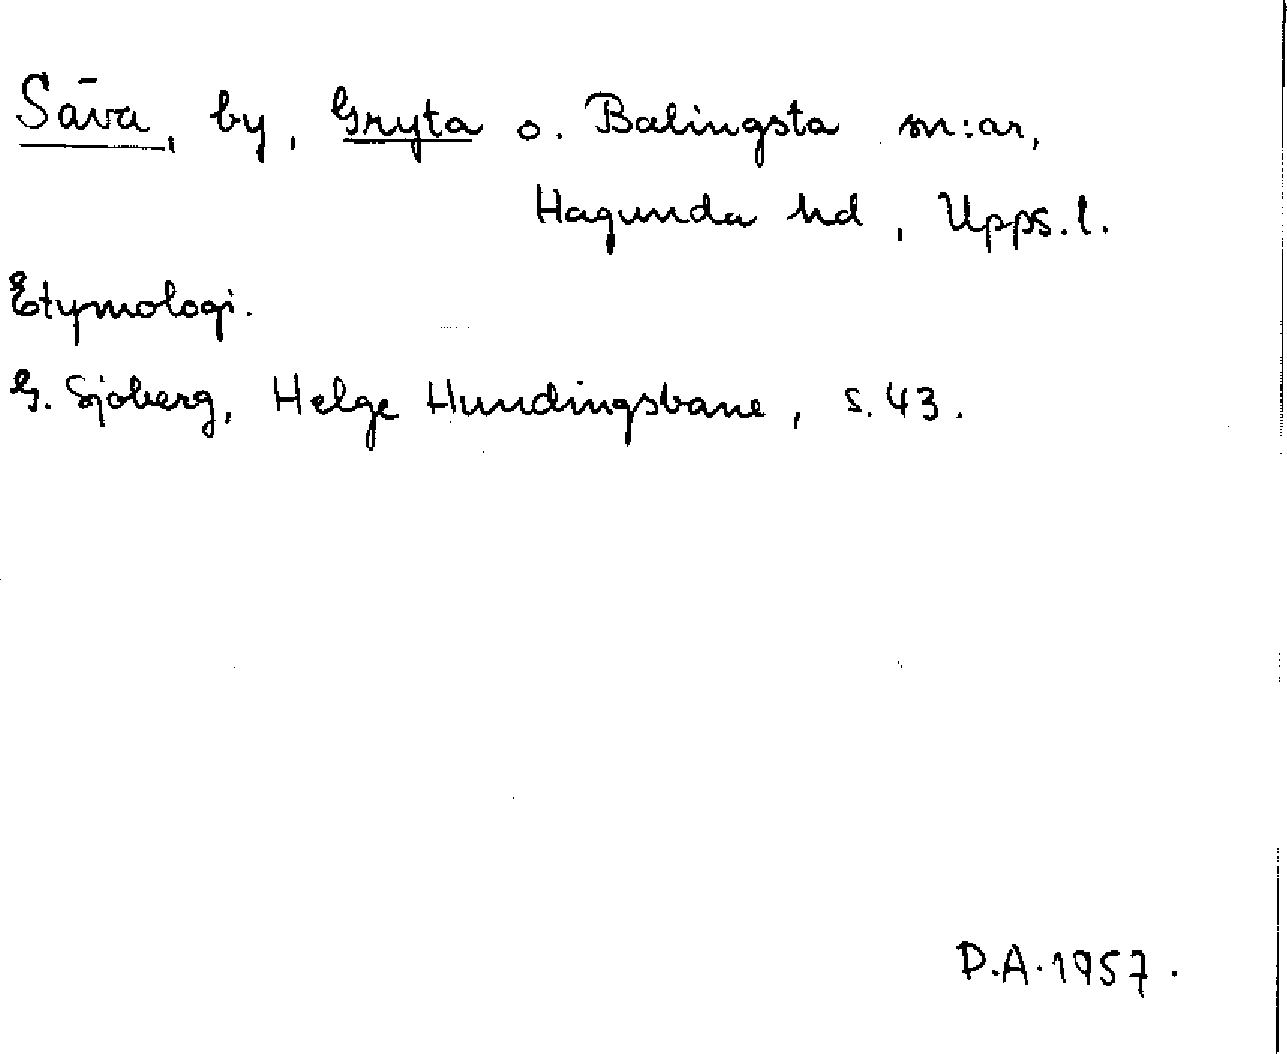 Säva, by, Gryta o. Balingsta sn:ar,
Hagunda hd, Upps.l.
Etymologi.
G. Sjöberg, Helge Hundingsbane, s. 43.
D.A. 1957.